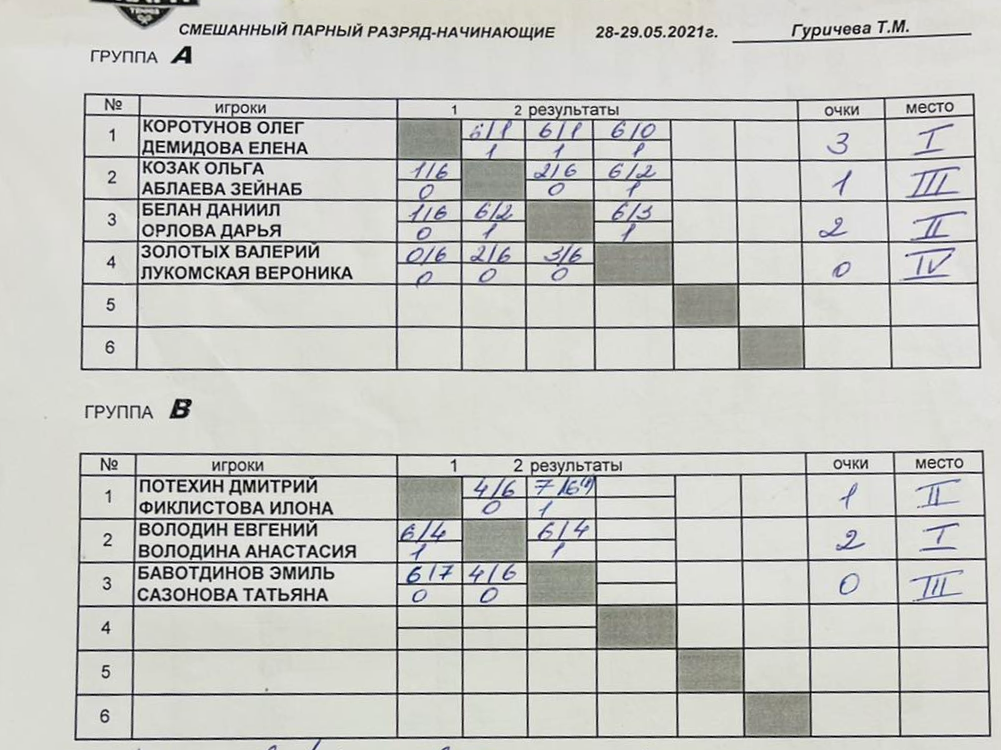 СМЕШАННЫЙ ПАРНЫЙ РАЗРЯД-НАЧИНАЮЩИЕ 28-29.05.2021г. Гуричева Т.М.
ГРУППА А
№ игроки 1 2 результаты очки место
1 КОРОТУНОВ ОЛЕГ 6/1 6/1 6/0
ДЕМИДОВА ЕЛЕНА 1 1 1 3 I
2 КОЗАК ОЛЬГА 1/6 2/6 6/2
АБЛАЕВА ЗЕЙНАБ 0 0 1 1 III
3 БЕЛАН ДАНИИЛ 1/6 6/2 6/3
ОРЛОВА ДАРЬЯ 0 1 1 2 II
4 ЗОЛОТЫХ ВАЛЕРИЙ 0/6 2/6 3/6
ЛУКОМСКАЯ ВЕРОНИКА 0 0 0 0 IV
5
6
ГРУППА В
№ игроки 1 2 результаты очки место
1 ПОТЕХИН ДМИТРИЙ 4/6 7/6
ФИКЛИСТОВА ИЛОНА 0 1 1 II
2 ВОЛОДИН ЕВГЕНИЙ 6/4 6/4
ВОЛОДИНА АНАСТАСИЯ 1 1 2 I
3 БАВОТДИНОВ ЭМИЛЬ 6/7 4/6
САЗОНОВА ТАТЬЯНА 0 0 0 III
4
5
6